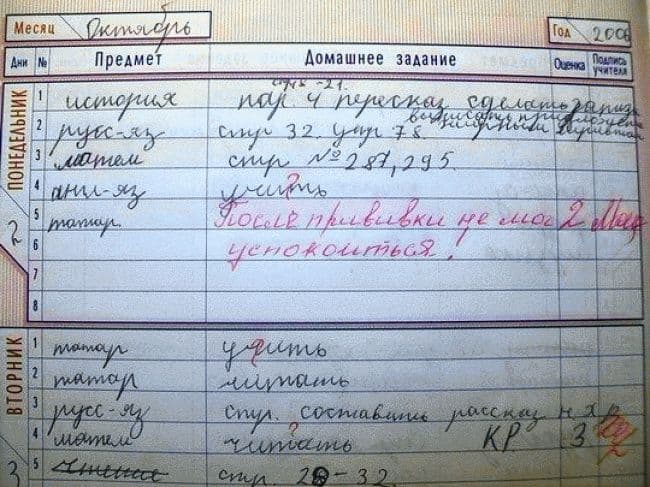 Месяц Октябрь Год 2006
Дни № Предмет Домашнее задание Оценка Подпись учителя
стр 18-21.
ПОНЕДЕЛЬНИК 2
1 история пар. 4 пересказ сделать
2 русс-яз стр 32. упр 78.
3 матем стр № 287, 295.
4 анг-яз учить
5 татар. После прививки не мог 2
6 успокоиться!
7
8
ВТОРНИК 3
1 татар учить
2 татар читать
3 русс-яз стр. составить рассказ
4 матем читать КР 3
5 чтение стр. 28-32